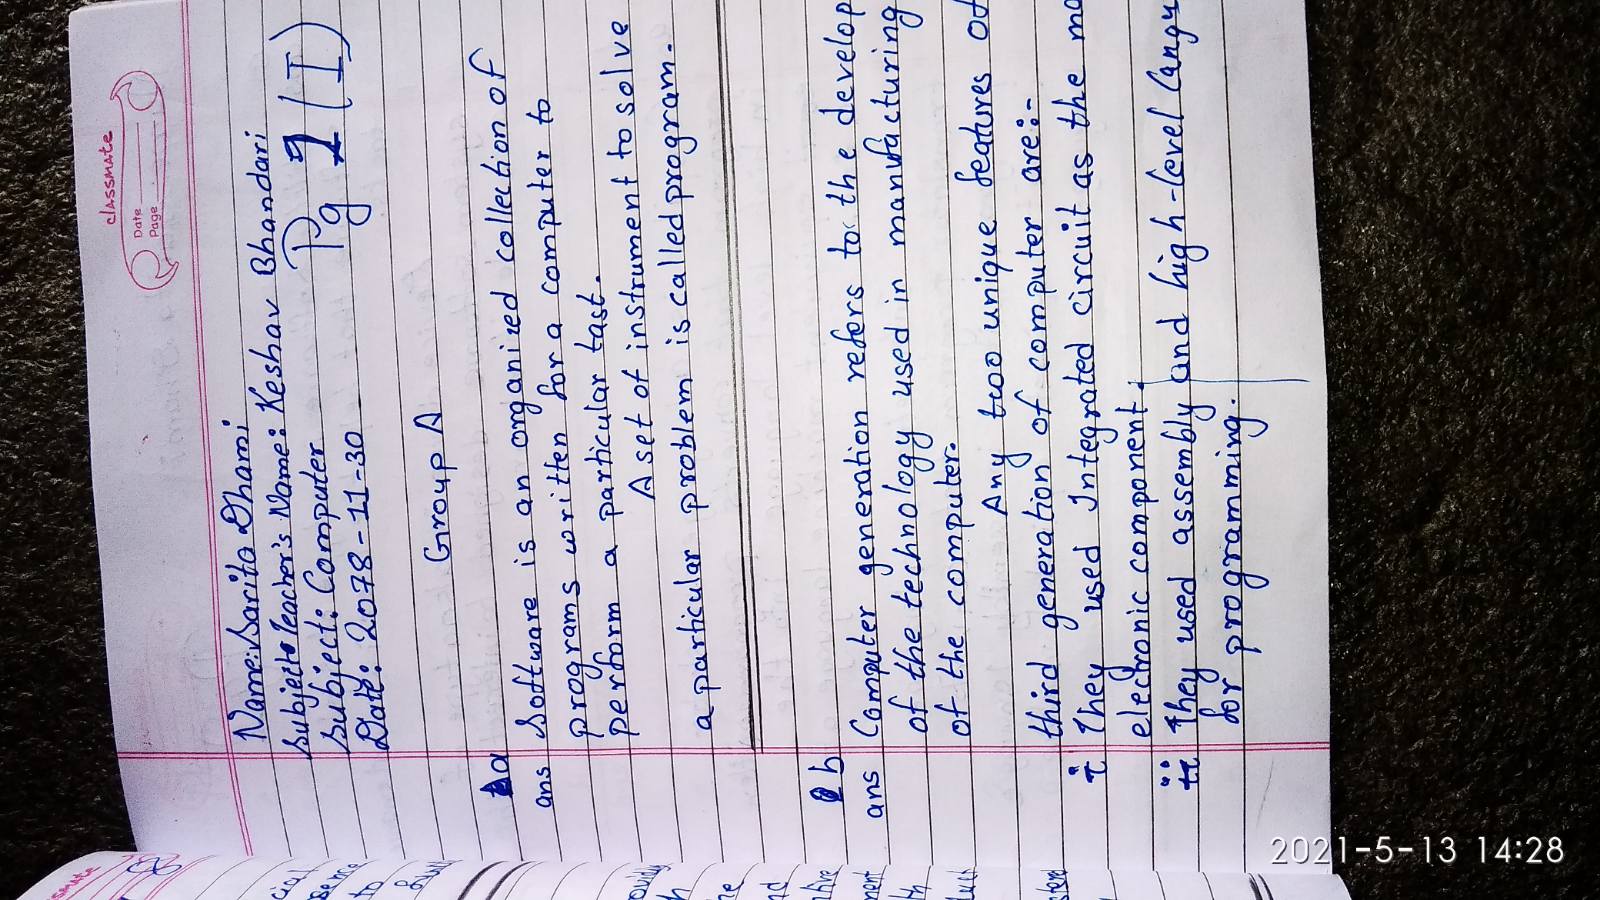 classmate
Date
Page
Name: Sarita Dhami
Subject Teacher's Name: Keshav Bhandari
Subject: Computer
Date: 2078-11-30
Pg 1 (I)
Group A
a
ans Software is an organized collection of
programs written for a computer to
perform a particular tast.
A set of instrument to solve
a particular problem is called program.
b
ans Computer generation refers to the develop
of the technology used in manufacturing
of the computer.
Any two unique features of
third generation of computer are:-
i They used Integrated circuit as the ma
electronic component.
ii They used assembly and high-level langu
for programming.
2021-5-13 14:28